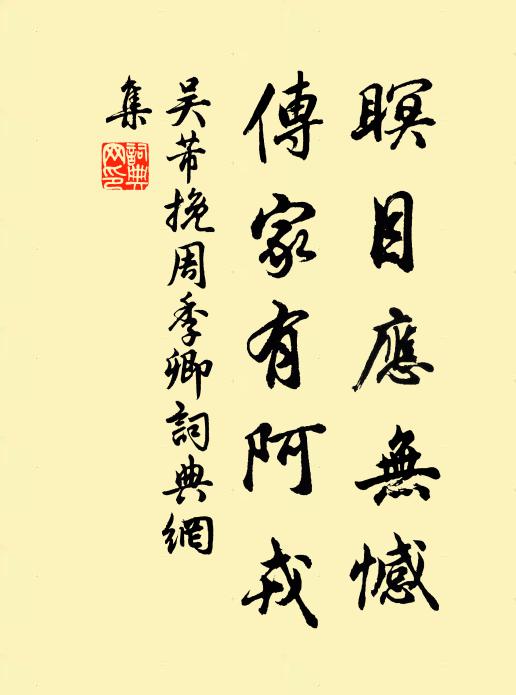 瞑目應無憾
傳家有阿戎
吳芾挽周季卿詞典網
集
詞典
網印